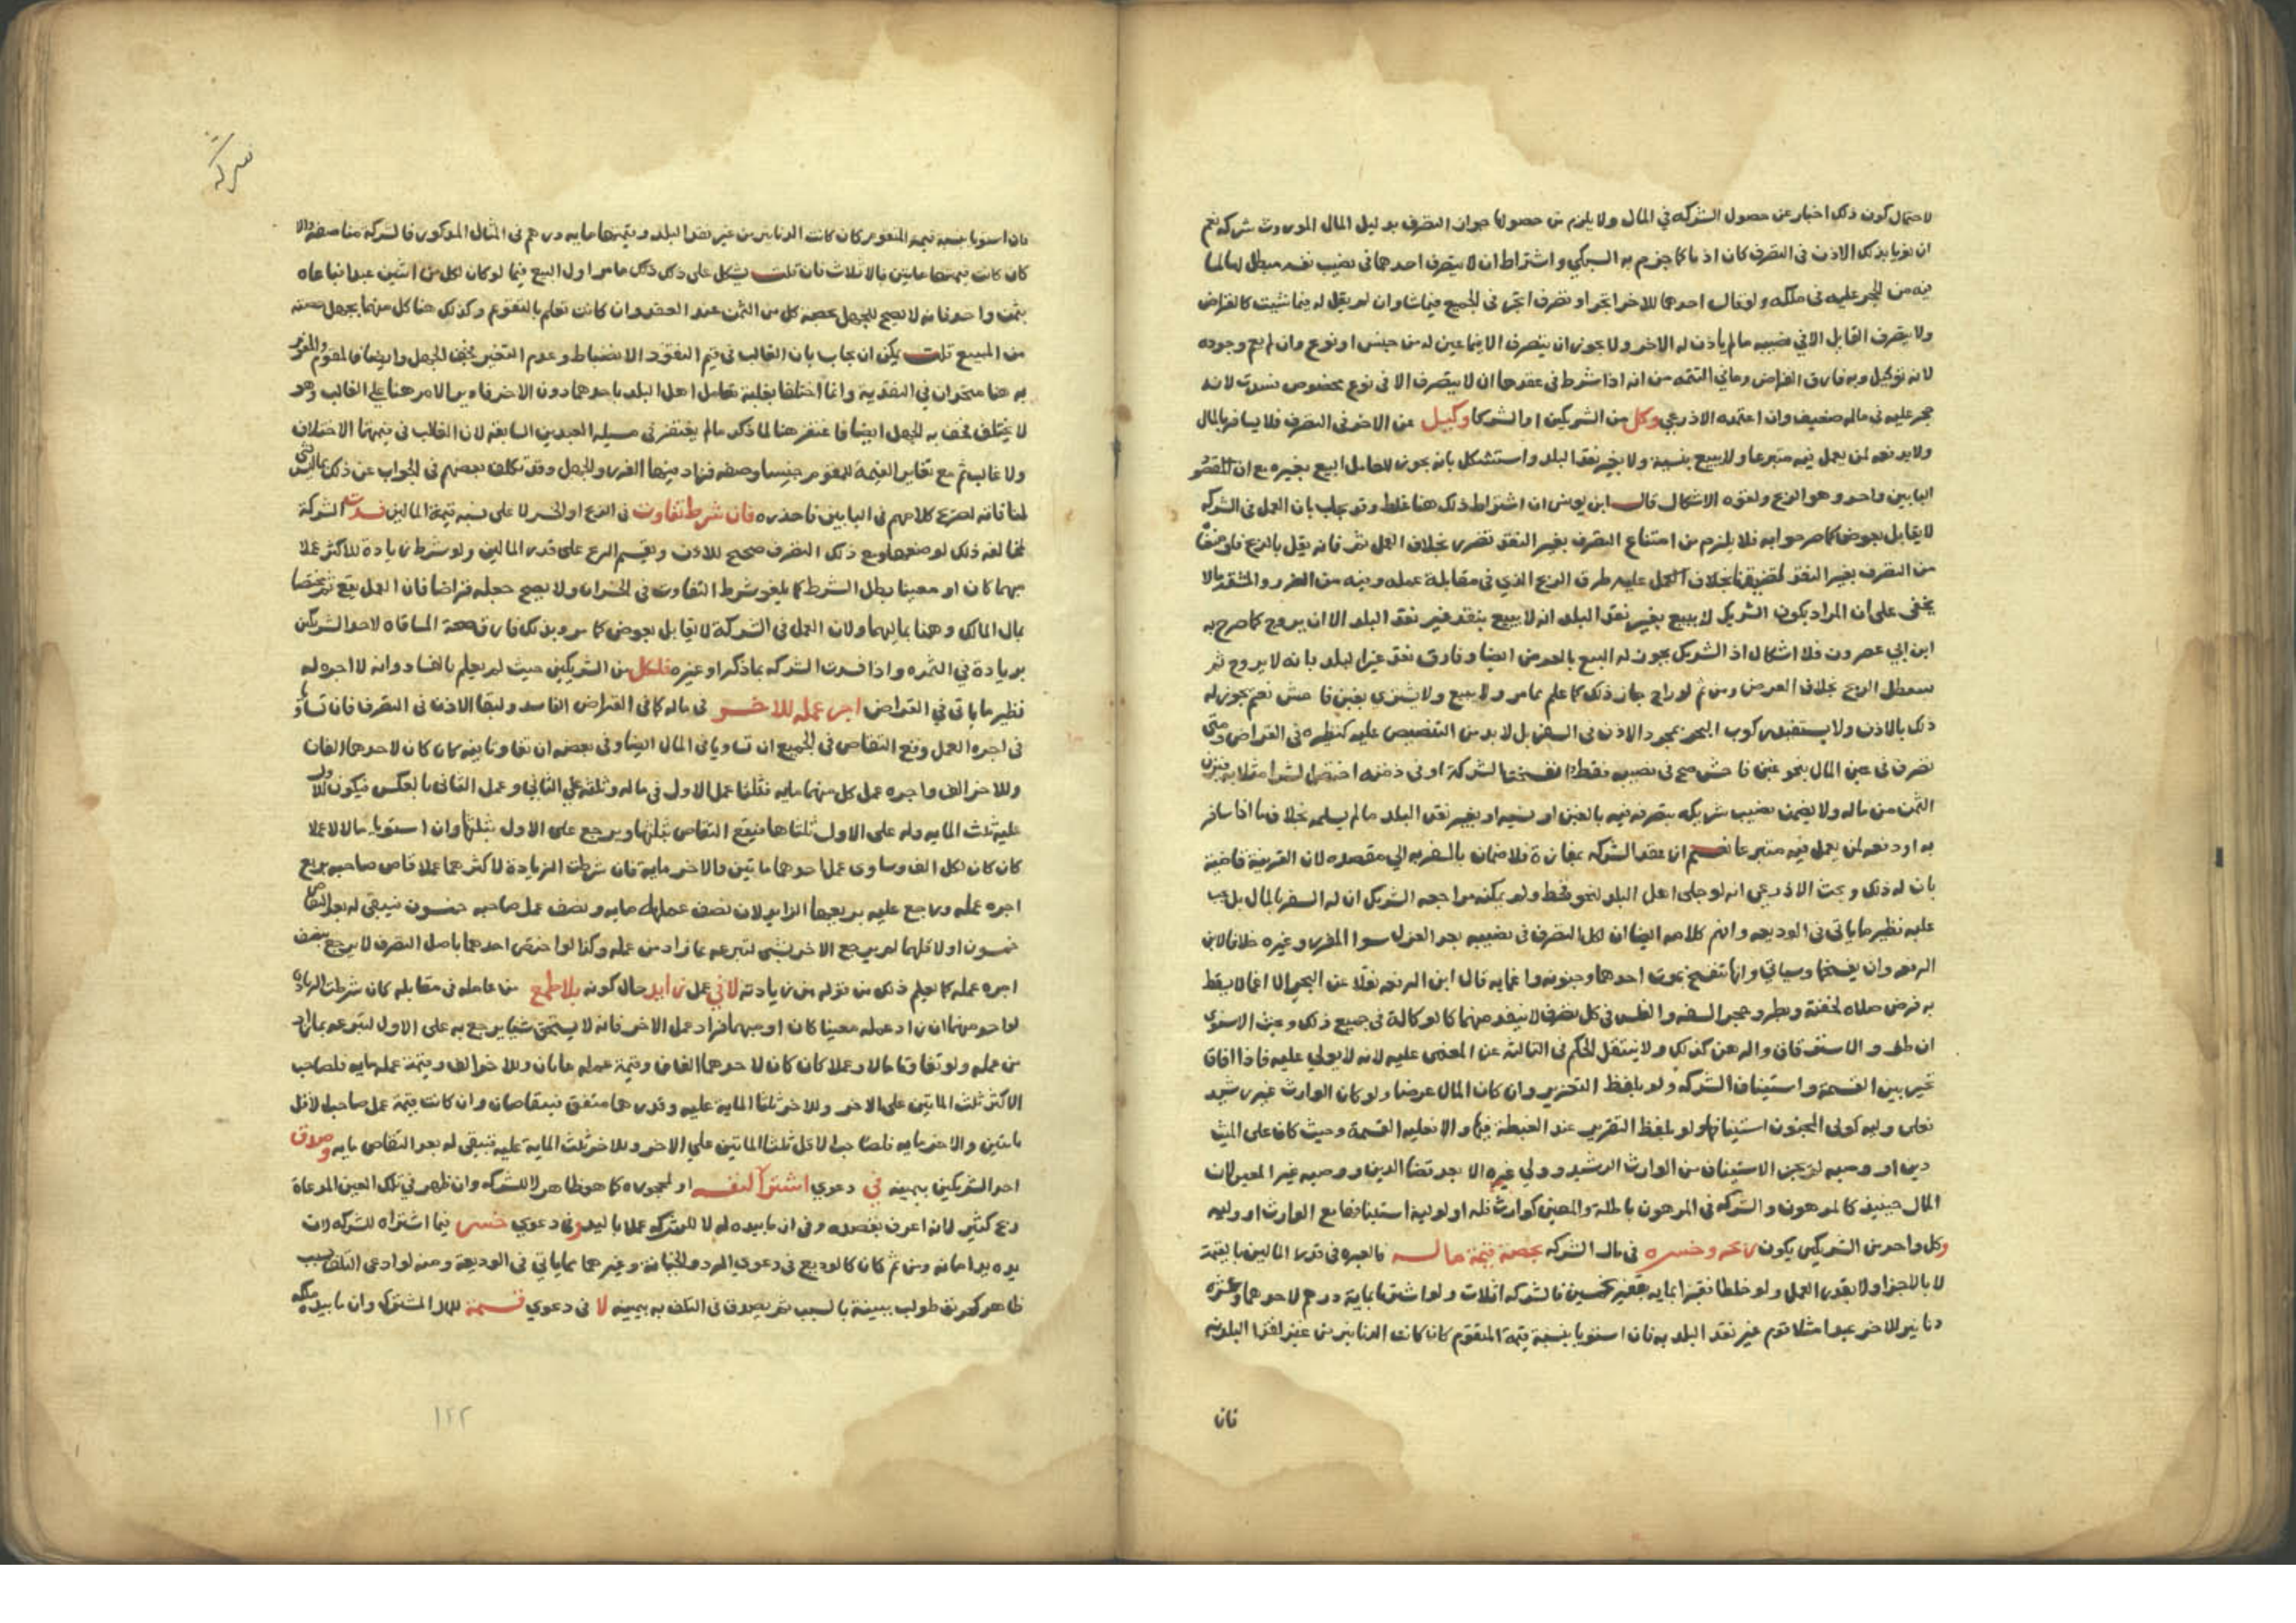 لاحتمال كون ذلك اخبار عن حصول الشركه في المال ولا يلزم من حصولها جواز التصرف بدليل المال الموروث شركه نعم
ان نويا بذلك الاذن في التصرف كان اذنا كما جزم به السبكي واشتراط ان لا يتصرف احدهما في نصيب نفسه مبطل لها لما
فيه من الحجر عليه في ملكه ولو قال احدهما للاخر اتجر او تصرف اتجر في الجميع فيما شا وان لم يقل له فيما شيت كالقراض
ولا يتصرف القايل الا في نصيبه ما لم ياذن له الاخر ولا يجوز ان يتصرف الا فيما عين له من جنس او نوع وان لم يعم وجوده
لانه توكيل وبه فارق القراض وما في التتمه من انه اذا شرط في عقدها ان لا يتصرف الا في نوع مخصوص فسدت لانه
حجر عليه في ماله ضعيف وان اعتمده الاذرعي وكل من الشريكين او الشركا وكيل عن الاخر في التصرف فلا يسافر بالمال
ولا يدفعه لمن يعمل فيه متبرعا ولا يبيع بنسية ولا بغير نقد البلد واستشكل بانه يجوز للعامل البيع بغيره مع ان المقصود
البابين واحد وهو الربح ولقوة الاشكال قال ابن يونس ان اشتراط ذلك هنا غلط وقد يجاب بان العمل في الشركه
لا يقابل بعوض كما صرحوا به فلا يلزم من امتناع التصرف بغير النقد تضرر بخلاف العمل ثم فانه يقابل بالربح فلو منعنا
من التصرف بغير النقد لضيقنا بخلاف العمل عليه طرق الربح الذي في مقابلة عمله وفيه من الضرر والمشقة ما لا
يخفى على ان المراد بكون الشريك لا يبيع بغير نقد البلد انه لا يبيع بنقد غير نقد البلد الا ان يروج كما صرح به
ابن ابي عصرون فلا اشكال اذ الشريك يجوز له البيع بالعرض ايضا وفارق نقد غير البلد بانه لا يروج ثم
فيتعطل الربح بخلاف العرض ومن ثم لو راج جاز ذلك كما علم مما مر ولا يبيع ولا يشتري بغبن فاحش نعم يجوز له
ذلك بالاذن ولا يستفيد ركوب البحر بمجرد الاذن في السفر بل لا بد من التنصيص عليه كنظيره في القراض ومتى
تصرف في عين المال بنحو غبن فاحش صح في نصيبه فقط وانفسخت الشركة او في ذمته اختص الشرا به فيزن
الثمن من ماله ولا يضمن نصيب شريكه بتصرفه فيه بالغبن او نسية او بغير نقد البلد ما لم يسلمه بخلاف ما اذا سافر
به او دفعه لمن يعمل فيه متبرعا نعم ان عقدا الشركه بمفازة فلا ضمان بالسفر به الي مقصده لان القرينة قاضية
بان له ذلك وبحث الاذرعي انه لو جلى اهل البلد لنحو قحط ولم يمكنه مراجعه الشريك ان له السفر بالمال بل يجب
عليه نظير ما ياتي في الوديعه وافهم كلامه ايضا ان لكل التصرف في نصيبه بعد العزل سوا المفرز وغيره خلافا لابن
الرفعه وان يفسخها وسياتي وانها تنفسخ بموت احدهما وجنونه واغمايه قال ابن الرفعه نقلا عن البحر الا اغما لا يسقط
به فرض صلاه لخفته وبطرو حجر السفه والفلس في كل تصرف لا ينفذ منهما كالوكالة في جميع ذلك وبحث الاسنوي
ان طرو الاسترقاق والرهن كذلك ولا ينتقل الحكم في الثالثة عن المغمى عليه لانه لا يولي عليه فاذا افاق
تخير بين القسمة واستيناف الشركه ولو بلفظ التقرير وان كان المال عرضا ولو كان الوارث غير رشيد
فعلى وليه كولى المجنون استينافها ولو بلفظ التقرير عند الغبطة فيها والا فعليه القسمة وحيث كان على الميت
دين او وصيه لم يجز الاستيناف من الوارث الرشيد وولي غيره الا بعد قضا الدين ووصيه غير المعين لان
المال حينيذ كالمرهون والشركه في المرهون باطلة والمعين كوارث فله او لوليه استينافها مع الوارث او وليه
وكل واحد من الشريكين يكون ربحه وخسره في مال الشركه بحصة قيمة ماله فالعبره في قدر المالين بالقيمة
لا بالاجزا ولا بقدر العمل ولو خلطا قفيزا بمايه بقفيز بخمسين فالشركه اثلاث ولو اشتريا بماية درهم لاحدهما وعشره
دنانير للاخر عبدا مثلا قوم غير نقد البلد به فان استويا بنسبة قيمة المتقوم كان كانت الدنانير من غير نقد البلد وقيمتها
فان
شركه
فان استويا بنسبة قيمة المتقوم كان كانت الدنانير من غير نقد البلد وقيمتها مايه درهم في المثال المذكور فالشركة مناصفة والا
كان كانت قيمتها مايتين فبالاثلاث فان قلت يشكل على ذلك ما مر اول البيع فيما لو كان لكل من اثنين عبد فباعاه
بثمن واحد فانه لا يصح للجهل بحصة كل من الثمن عند العقد وان كانت تعلم بالتقويم وكذلك هنا كل منهما يجهل حصته
من المبيع قلت يمكن ان يجاب بان الغالب في قيم النقود الانضباط وعدم التغير فخف الجهل وايضا فالمقوم والمقوم
به هنا متحدان في النقدية وانما اختلفا بغلبة تعامل اهل البلد باحدهما دون الاخر فادير الامر هنا علي الغالب وهو
لا يختلف فخف به الجهل ايضا فاغتفر هنا لما ذكر ما لم يغتفر في مسيلة العبدين السابقه لان الغالب في قيمتها الاختلاف
ولا غالب ثم مع تغاير القيمة للمقوم جنسا وصفه فزاد فيها الغرر والجهل وقد تكلف بعضهم في الجواب عن ذلك بما ليس
لما فانه لصرح كلامهم في البابين فاحذره فان شرط تفاوت في الربح او الخسر لا على نسبة قيمة المالين فسدت الشركة
لمخالفه ذلك لوضعها ومع ذلك التصرف صحيح للاذن ويقسم الربح على قدر المالين ولو شرط زيادة للاكثر عملا
مبهما كان او معينا بطل الشرط كما يلغو شرط التفاوت في الخسران ولا يصح جعله قراضا فان العمل يقع ثم مختصا
بمال المالك وهنا بماليهما ولان العمل في الشركة لا يقابل بعوض كما مر وبذلك فارق صحة المساقاه لاحد الشريكين
بزيادة في الثمره واذا فسدت الشركه بما ذكر او غيره فلكل من الشريكين حيث لم يعلم بالفساد وانه لا اجره له
نظير ما ياتي في القراض اجر عمله للاخر في ماله كما في القراض الفاسد ولبقا الاذن في التصرف فان تساويا
في اجره العمل وقع التقاص في الجميع ان تساويا في المال ايضا وفي بعضه ان تفاوتا فيه كان كان لاحدهما الفان
وللاخر الف واجره عمل كل منهما مايه فثلثا عمل الاول في ماله وثلثه علي الثاني وعمل الثاني بالعكس فيكون للاول
عليه ثلث المايه وله على الاول ثلثاها فيقع التقاص بثلثها ويرجع على الاول بثلثها وان استويا مالا لا عملا
كان كان لكل الف وساوى عمل احدهما مايتين والاخر ماية فان شرطت الزيادة لاكثرهما عملا قاص صاحبه بربع
اجره عمله ورجع عليه بربعها الزايد لان نصف عمله مايه ونصف عمل صاحبه خمسون فيبقى له بعد التقاص
خمسون او لاقلهما لم يرجع الاخر بشى لتبرعه بما زاد من عمله وكذا لو اختص احدهما باصل التصرف لا يرجع بنصف
اجره عمله كما يعلم ذلك من قوله من زيادته لا في عمل زايد حال كونه بلا طمع من عامله في مقابله كان شرطت الزياده
لواحد منهما ان زاد عمله معينا كان او مبهما فزاد عمل الاخر فانه لا يستحق شيا يرجع به على الاول لتبرعه بما زاد
من عمله ولو تفاوتا مالا وعملا كان كان لاحدهما الفان وقيمة عمله مايتان وللاخر الف وقيمة عمله مايه فلصاحب
الاكثر ثلث المايتين على الاخر وللاخر ثلثا الماية عليه وقدرهما متفق فيتقاصان وان كانت قيمة عمل صاحب الاقل
مايتين والاخر مايه فلصاحب الاقل ثلثا المايتين علي الاخر وللاخر ثلث الماية عليه فيبقى له بعد التقاص مايه وصدق
احد الشريكين بيمينه في دعوي اشترا لنفسه او لهما كما هو ظاهر لا للشركه وان ظهر في تلك العين المدعاة
ربح كثير لانه اعرف بقصده وفي ان ما بيده له لا للشركه عملا باليد وفي دعوي خسر فيما اشتراه للشركه لان
يده يد امانه ومن ثم كان كالوديع في دعوي الرد والخيانة وغيرهما مما ياتي في الوديعة ومنه لو ادعى التلف بسبب
ظاهر كحريق طولب ببينة بالسبب ثم يصدق في التلف به بيمينه لا في دعوي قسمة للمال المشترك وان ما بيده ملكه
١٢٢